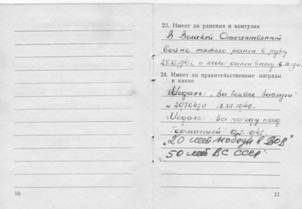 23. Имеет ли ранения и контузии
В Великой Отечественной
войне тяжело ранен в руку
24. Имеет ли правительственные награды
и какие
Медаль: „За боевые заслуги"
Медаль: За победу над
Германией
„20 лет победы в ВОВ"
50 лет ВС СССР"
10
11